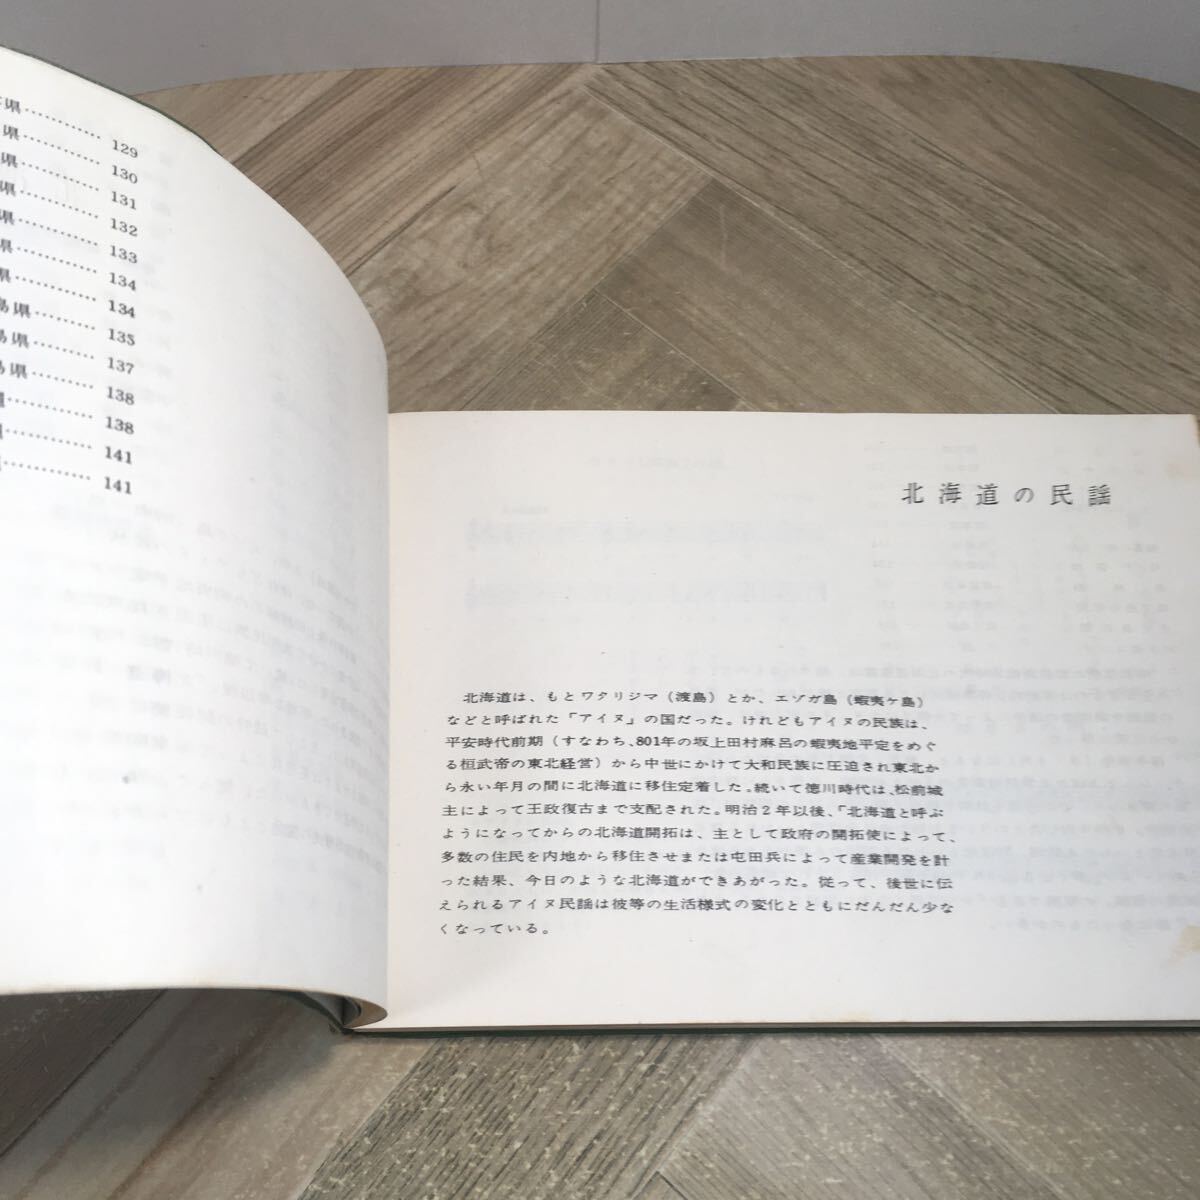 県………… 129
県………… 130
県………… 131
県………… 132
県………… 133
県………… 134
県………… 134
島県……… 135
島県……… 137
島県……… 138
………… 138
………… 141
………… 141
北海道の民謡
北海道は、もとワタリジマ(渡島)とか、エゾガ島(蝦夷ヶ島)
などと呼ばれた「アイヌ」の国だった。けれどもアイヌの民族は、
平安時代前期(すなわち、801年の坂上田村麻呂の蝦夷地平定をめぐ
る桓武帝の東北経営)から中世にかけて大和民族に圧迫され東北か
ら永い年月の間に北海道に移住定着した。続いて徳川時代は、松前城
主によって王政復古まで支配された。明治2年以後、「北海道と呼ぶ
ようになってからの北海道開拓は、主として政府の開拓使によって、
多数の住民を内地から移住させまたは屯田兵によって産業開発を計
った結果、今日のような北海道ができあがった。従って、後世に伝
えられるアイヌ民謡は彼等の生活様式の変化とともにだんだん少な
くなっている。